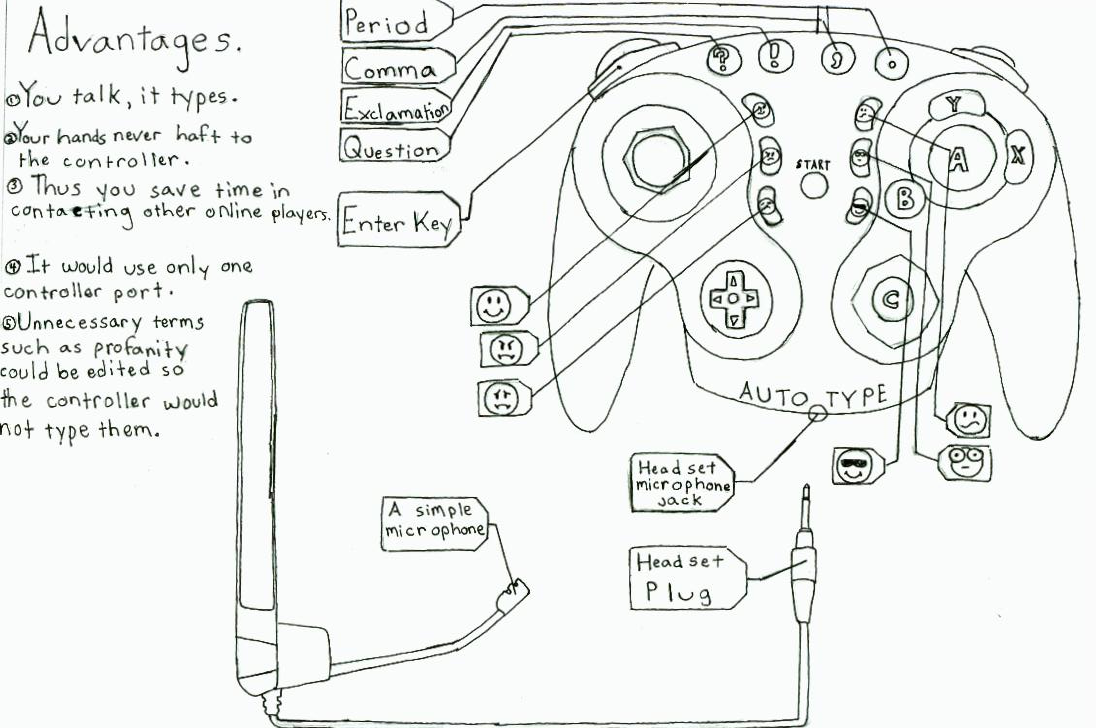 Advantages.
① You talk, it types.
② Your hands never haft to
the controller.
③ Thus you save time in
contacting other online players.
④ It would use only one
controller port.
⑤ Unnecessary terms
such as profanity
could be edited so
the controller would
not type them.
Period
Comma
Exclamation
Question
Enter Key
? ! , .
Y
X
A
B
START
C
AUTO TYPE
Head set
microphone
jack
A simple
microphone
Head set
Plug